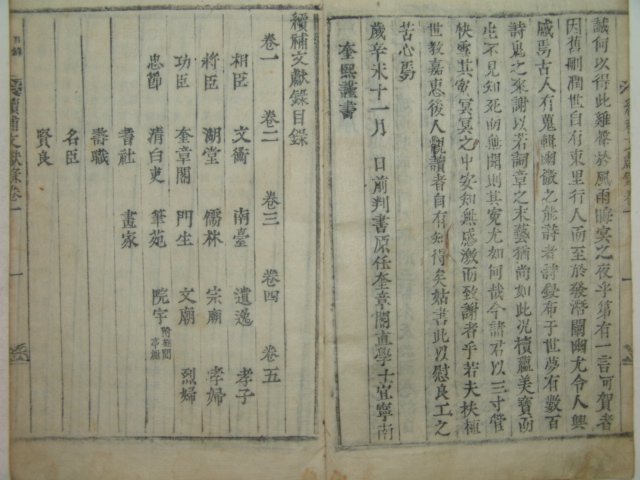 誠何以得此雖擧於風雨晦冥之夜乎第有一言可賀者
因舊刪潤世自有東里行人而至於發潛闡幽尤令人興
感焉古人有蒐輯幽徽之能詩者詩錄布于世夢有數百
詩鬼之來謝以若詞章之末藝猶尚如此況積蘊美寶而
生不見知死而無聞則其寃尤如何哉今諸君以三寸管
快雪其寃冥冥之中安知無感激而致謝者乎若夫扶植
世教嘉惠後人觀讀者自有知得矣姑書此以慰良工之
苦心焉
歲辛未十一月 日前判書原任奎章閣直學士宜寧南
奎熙叢書
續補文獻錄目錄
卷一 卷二 卷三 卷四 卷五
相臣 文衡 南臺 遺逸 孝子
將臣 湖堂 儒林 宗廟 孝婦
功臣 奎章閣 門生 文廟 烈婦
忠節 清白吏 筆苑 院宇
耆社 畫家
壽職
名臣
賢良
續補文獻錄卷一
目錄